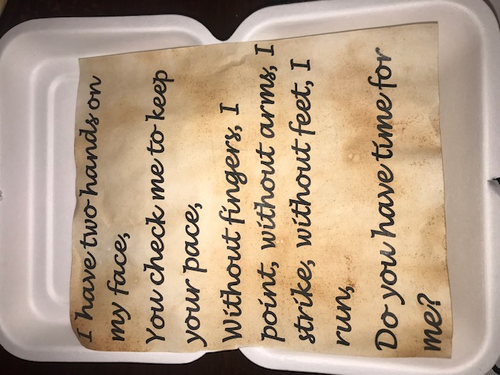 I have two hands on
my face,
You check me to keep
your pace,
Without fingers, I
point, without arms, I
strike, without feet, I
run,
Do you have time for
me?